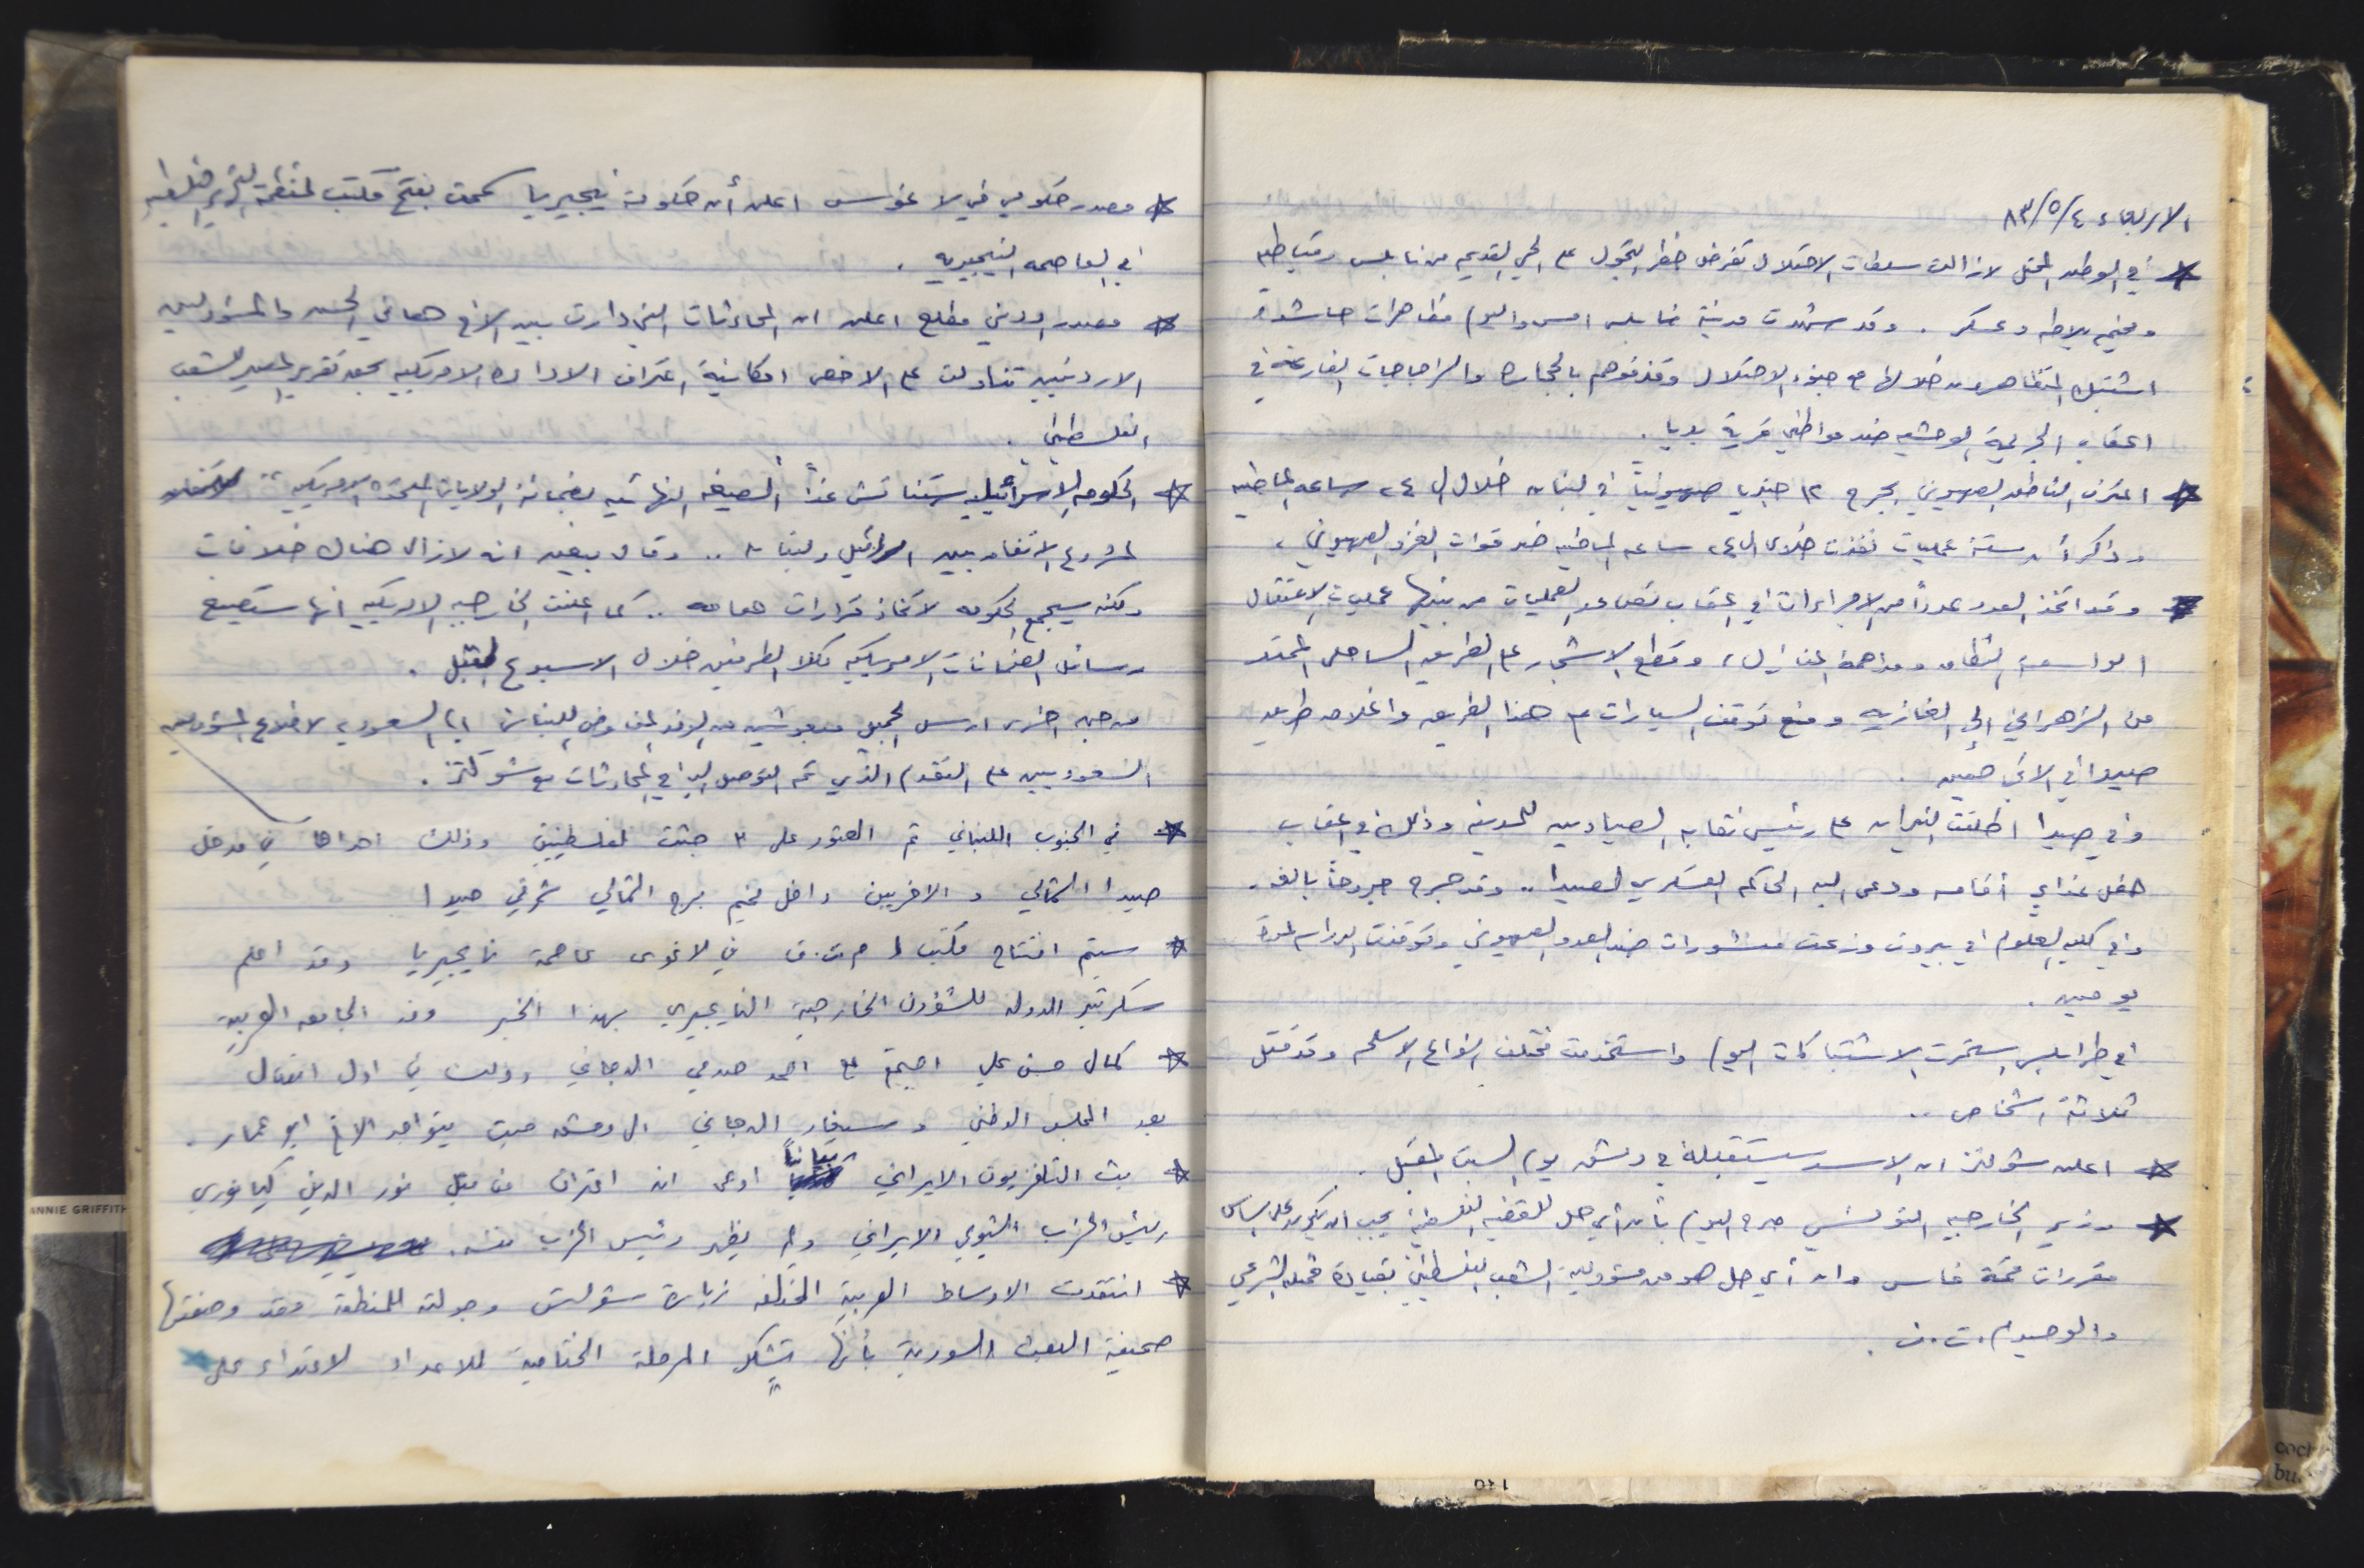 الاربعاء ٨٣/٥/٤
* في الوطن المحتل لازالت سلطات الاحتلال تفرض حظر التجول على الحي القديم من نابلس وقباطيه
ومخيم بلاطه وعسكر . وقد شهدت مدينة نابلس امس واليوم مظاهرات حاشدة
اشتبك المتظاهرون خلالها مع جنود الاحتلال وقذفوهم بالحجارة والزجاجات الفارغة في
اعقاب الجريمة الوحشيه ضد مواطني قرية بديا .
* اعترف الناطق الصهيوني بجرح ١٢ جنديا صهيونياً في لبنان خلال ال ٢٤ ساعه الماضيه
وذكر أن ستة عمليات نفذت خلال ال ٢٤ ساعه الماضيه ضد قوات الغزو الصهيوني ،
* وقد اتخذ العدو عدداً من الاجراءات في اعقاب تصاعد العمليات من بينها عمليات الاعتقال
الواسعة النطاق ومداهمة المنازل ، وقطع الاشجار على الطريق الساحلي الممتد
من الزهراني الى الغازيه ومنع توقف السيارات على هذا الطريق واغلاق طريق
صيدا في الاتجاهين .
وفي صيدا اطلقت النيران على رئيس نقابه الصيادين للمدينه وذلك في اعقاب
حفل غذاء أقامه ودعى اليه الحاكم العسكري لصيدا .. وقد جرح جروحاً بالغه .
وفي كلية العلوم في بيروت وزعت منشورات ضد العدو الصهيوني وتوقفت الدراسه لمدة
يومين .
في طرابلس استمرت الاشتباكات اليوم واستخدمت مختلف انواع الاسلحه وقد قتل
ثلاثة اشخاص ..
* اعلن شولتز ان الاسد سيستقبله في دمشق يوم السبت المقبل .
* وزير الخارجيه التونسي صرح اليوم بأن أي حل للقضيه الفلسطينية يجب ان يكون على اساس
مقررات قمة فاس وان أي حل هو من مسؤولية الشعب الفلسطيني بقيادة ممثله الشرعي
والوحيد م.ت.ف .
* مصدر حكومي في لاغوس اعلن أن حكومة نيجيريا سمحت بفتح مكتب لمنظمة التحرير الفلسطينيه
في العاصمه النيجيريه .
* مصدر اردني مطلع اعلن ان المحادثات التي دارت بين الاخ هاني الحسن والمسؤولين
الاردنيين تناولت على الاخص امكانية اعتراف الادارة الامريكيه بحق تقرير المصير للشعب
الفلسطيني .
* الحكومه الاسرائيليه ستناقش غداً الصيغه النهائيه لضمانة الولايات المتحده الامريكيه
لمشروع الاتفاق بين اسرائيل ولبنان .. وقال بيغين انه لازال هناك خلافات
ولكنه سيجمع الحكومه لاتخاذ قرارات هامه .. كما اعلنت الخارجيه الامريكيه انها ستصيغ
رسائل الضمانات الامريكيه لكلا الطرفين خلال الاسبوع المقبل .
من جهه اخرى ارسل الجميل مبعوثين من الوفد المفاوض اللبناني الى السعوديه لاطلاع المسؤولين
السعوديين على التقدم الذي تم التوصل اليه في المحادثات مع شولتز .
* في الجنوب اللبناني تم العثور على ٣ جثث لفلسطينيين وذلك احداها في مدخل
صيدا الشمالي والاخريين داخل مخيم برج الشمالي شرقي صيدا
* سيتم افتتاح مكتب ل م.ت.ف في لاغوس عاصمة نايجيريا وقد اعلم
سكرتير الدوله للشؤون الخارجية النايجيري بهذا الخبر وفد الجامعه العربية
* كمال حسن علي اجتمع مع احمد صدقي الدجاني وذلك في اول اتصال
بعد المجلس الوطني وسيغادر الدجاني الى دمشق حيث يتواجد الاخ ابو عمار .
* بث التلفزيون الايراني بياناً ادعى انه اعتراف من قبل نور الدين كيانوري
رئيس الحزب الشيوعي الايراني ولم يظهر رئيس الحزب نفسه .
* انتقدت الاوساط العربية المختلفه زيارة شولتس وجولته للمنطقة فقد وصفتها
صحيفة البعث السورية بأنها تشكل المرحلة الختامية للاعداد لاعتداء على